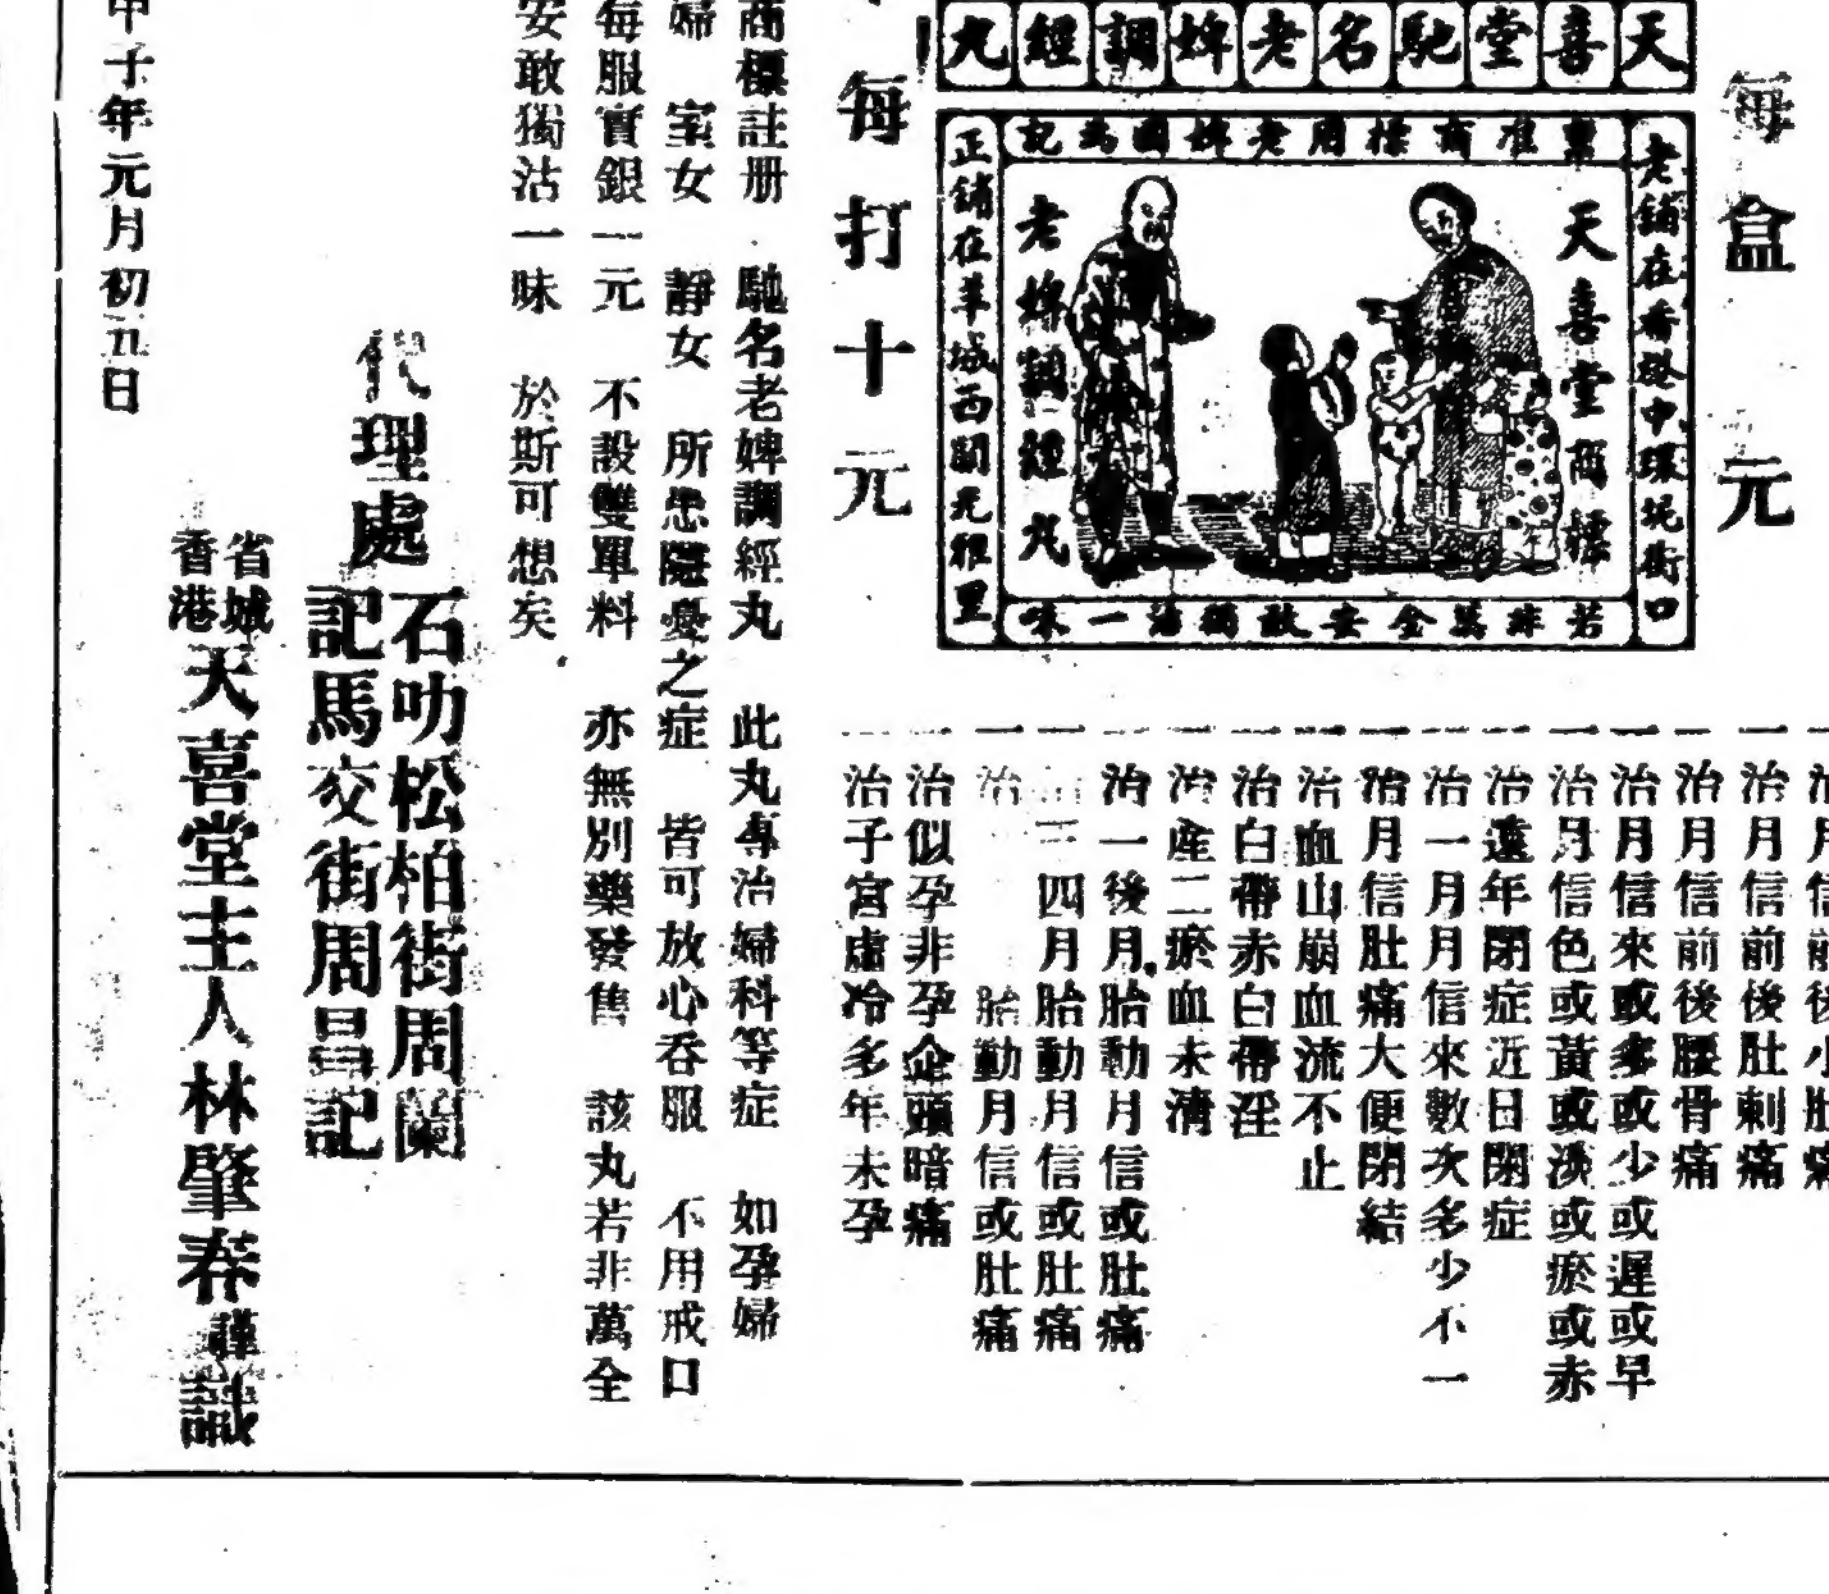 天喜堂馳名老婢調經丸
稟准商標用老婢圖為記
老鋪在香港中環坭街口
天喜堂商標
老婢調經丸
正鋪在羊城西關光雅里
若非萬全安敢獨沽一味
每盒元
每打十元
一治月信前後肚刺痛
一治月信前後腰骨痛
一治月信來或多或少或遲或早
一治月信色或黃或淡或瘀或赤
一治遠年閉症近日閉症
一治一月月信來數次多少不一
一治月信肚痛大便閉結
一治血山崩血流不止
一治白帶赤白帶淫
一治產二瘀血未清
一治一後月胎動月信或肚痛
一三四月胎動月信或肚痛
一治胎動月信或肚痛
一治似孕非孕企頭暗痛
一治子宮虛冷多年未孕
商標註册 馳名老婢調經丸 此丸專治婦科等症 如孕婦
婦 室女 靜女 所患隱憂之症 皆可放心吞服 不用戒口
每服實銀一元 不設雙單料 亦無別藥發售 該丸若非萬全
安敢獨沽一味 於斯可想矣
代理處
石叻松柏街周蘭
記馬交街周昌記
省城
香港
天喜堂主人林肇春謹識
甲子年元月初日